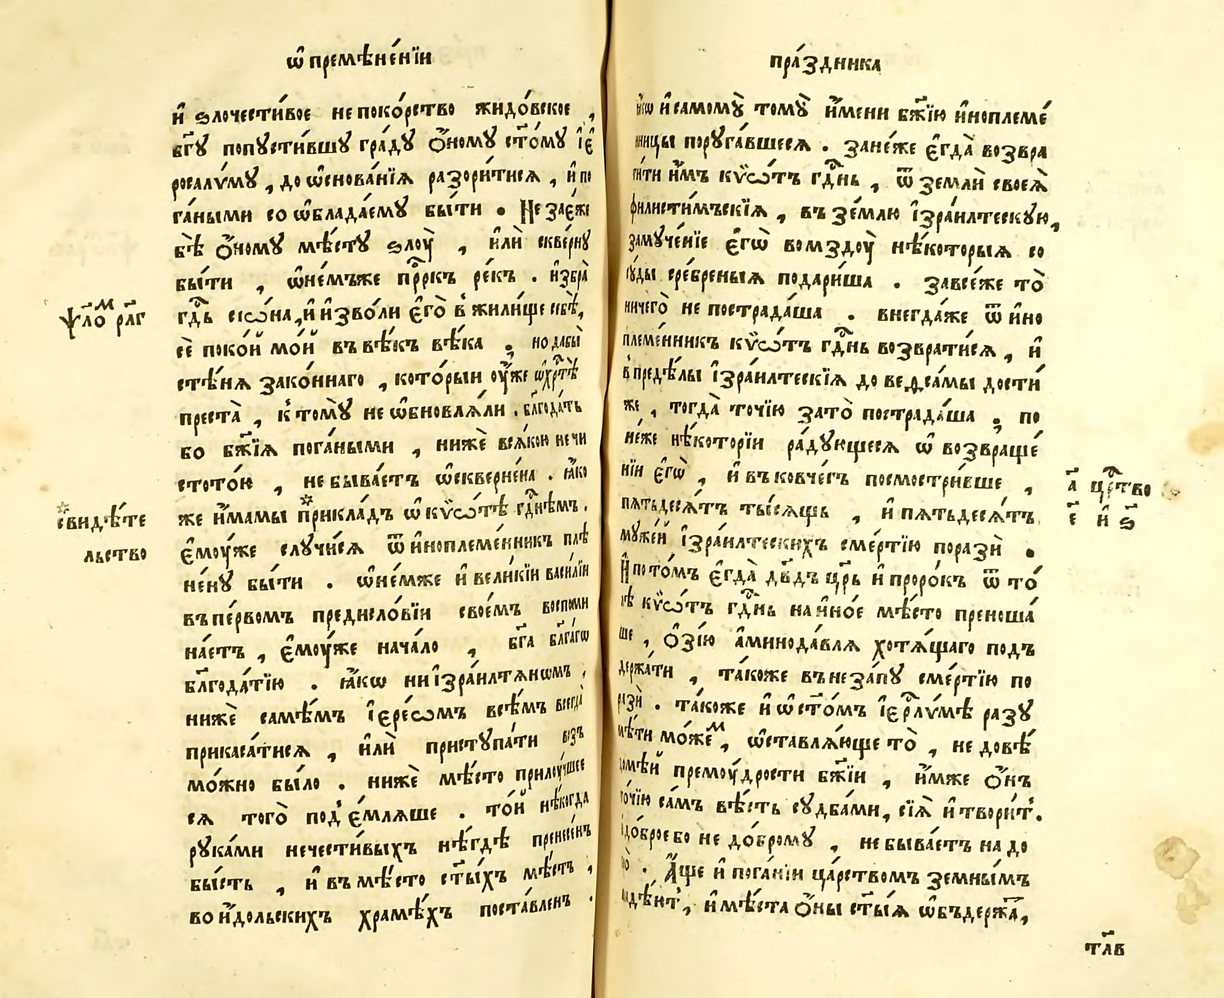 ѡ҆ премѣне́нїи
и҆ ѕлочести́вое непоко́рство жидо́вское ,
бг҃у попусти́вшу гра́ду ѻ҆́ному ст҃о́му і҆е
росали́му , до ѡ҆снова́нїѧ разори́тисѧ , и҆ по
га́ными со ѡ҆блада́ему бы́ти . Не заеже
бѣ̀ ѻ҆́ному мѣ́сту ѕлоу̀ , и҆лѝ скве́рну
бы́ти , ѡ҆не́мъже прⷪ҇ркъ ре́къ . и҆збра̀
гдⷭ҇ь сїѡ́на, и҆ и҆зво́ли є҆го̀ в̾ жили́ще себѣ̀,
сѐ поко́й мо́й въ вѣ́къ вѣ́ка , но дабы̀
стѣ́нѧ зако́ннаго , кото́рыи ѹ҆́же ѡ҆хрⷭ҇тѣ̀
преста̀ , к̾ тому̀ не ѡ҆бновлѧ́ли . блг҃ода́ть
бо бж҃їѧ пога́ными , нижѐ всѧ́кою нечи
стото́ю , не быва́етъ ѡ҆скверне́на . ꙗ҆́ко
же и҆́мамы прикла́дъ ѡ҆ кѵ̈ѡ́тѣ гдⷭ҇немъ .
є҆моу́же случи́сѧ ѿ и҆ноплеме́нникъ плѣ
не́ну бы́ти . ѡ҆не́мже и҆ вели́кїи васи́лїи
въ пе́рвомъ предисло́вїи свое́мъ воспоми
на́етъ , є҆моу́же нача́ло , бг҃а блг҃а́гѡ
блг҃ода́тїю . ꙗ҆́кѡ ни і҆зра́илтѧнѡмъ ,
нижѐ самѣ́мъ і҆ере́ѡмъ всѣ́мъ всегда̀
прикаса́тисѧ , и҆лѝ приступа́ти въз
мо́жно бы́ло . нижѐ мѣ́сто прилоу́чшее
сѧ того̀ под̾е́млѧше . то́й нѣ́когда
рука́ми нечести́выхъ нѣ́гдѣ пренесе́нъ
бы́сть , и҆ въ мѣ́сто ст҃ы́хъ мѣ́стъ ,
во и҆́дольскихъ храмѣ́хъ поста́вленъ .
ѱало́ⷨ рл҃г
свидѣ́те
льство
пра́здника
и҆ самому̀ тому̀ и҆́мени бж҃їю и҆ноплеме́
нницы поруга́вшеесѧ . зане́же є҆гда̀ возвра
ти́ти и҆̀мъ кѵ̈ѡ́тъ гдⷭ҇нь , ѿ землѝ своеѧ̀
филисти́мъскїѧ , въ зе́млю і҆зра́илтескую,
замуче́нїе є҆гѡ̀ во мздоу̀ нѣ́которыѧ со
су́ды сре́бреныѧ подари́ша . за все́же то̀
ничего̀ не пострада́ша . внегда́же ѿ и҆но
племе́нникъ кѵ̈ѡ́тъ гдⷭ҇нь возврати́сѧ , и҆
в̾ преде́лы і҆зра́илтескїѧ до веѳса́мы дости́
же , тогда̀ то́чїю за то̀ пострада́ша , по
не́же нѣ́которїи ра́дующеесѧ ѡ҆ возвраще́
нїи є҆гѡ̀ , и҆ въ ковче́гъ посмотри́вше ,
пѧтьдесѧ́тъ ты́сѧщь , и҆ пѧтьдесѧ́тъ
муже́й і҆зра́илтескихъ сме́ртїю поразѝ .
И҆ пото́мъ є҆гда̀ дв҃дъ цр҃ь и҆ проро́къ ѿ то́
лѣ кѵ̈ѡ́тъ гдⷭ҇нь на и҆но́е мѣ́сто преноша́
ше , ѻ҆́зїю а҆минода́влѧ хотѧ́щаго подъ
держа́ти , та́коже въ неза́пу сме́ртїю по
разѝ . та́коже и҆ ѡ҆ ст҃о́мъ і҆ерⷭ҇ли́мѣ разу
мѣ́ти мо́жеⷨ , ѡ҆ставлѧ́юще то̀ , не довѣ́
домѣй премоу́дрости бж҃їи , и҆́мже ѻ҆́нъ
то́чїю са́мъ вѣ́сть судба́ми, сїѧ̀ и҆ твори́т̾.
до́брое бо не до́брому , не быва́етъ на до
А҆́ще и҆ пога́нїи ца́рствомъ земны́мъ
и҆ мѣ́ста ѻ҆́ны ст҃ы́ѧ ѡ҆бъдержа́,
а҃ црⷭ҇тво
є҃ и҆ ѕ҃
тл҃в